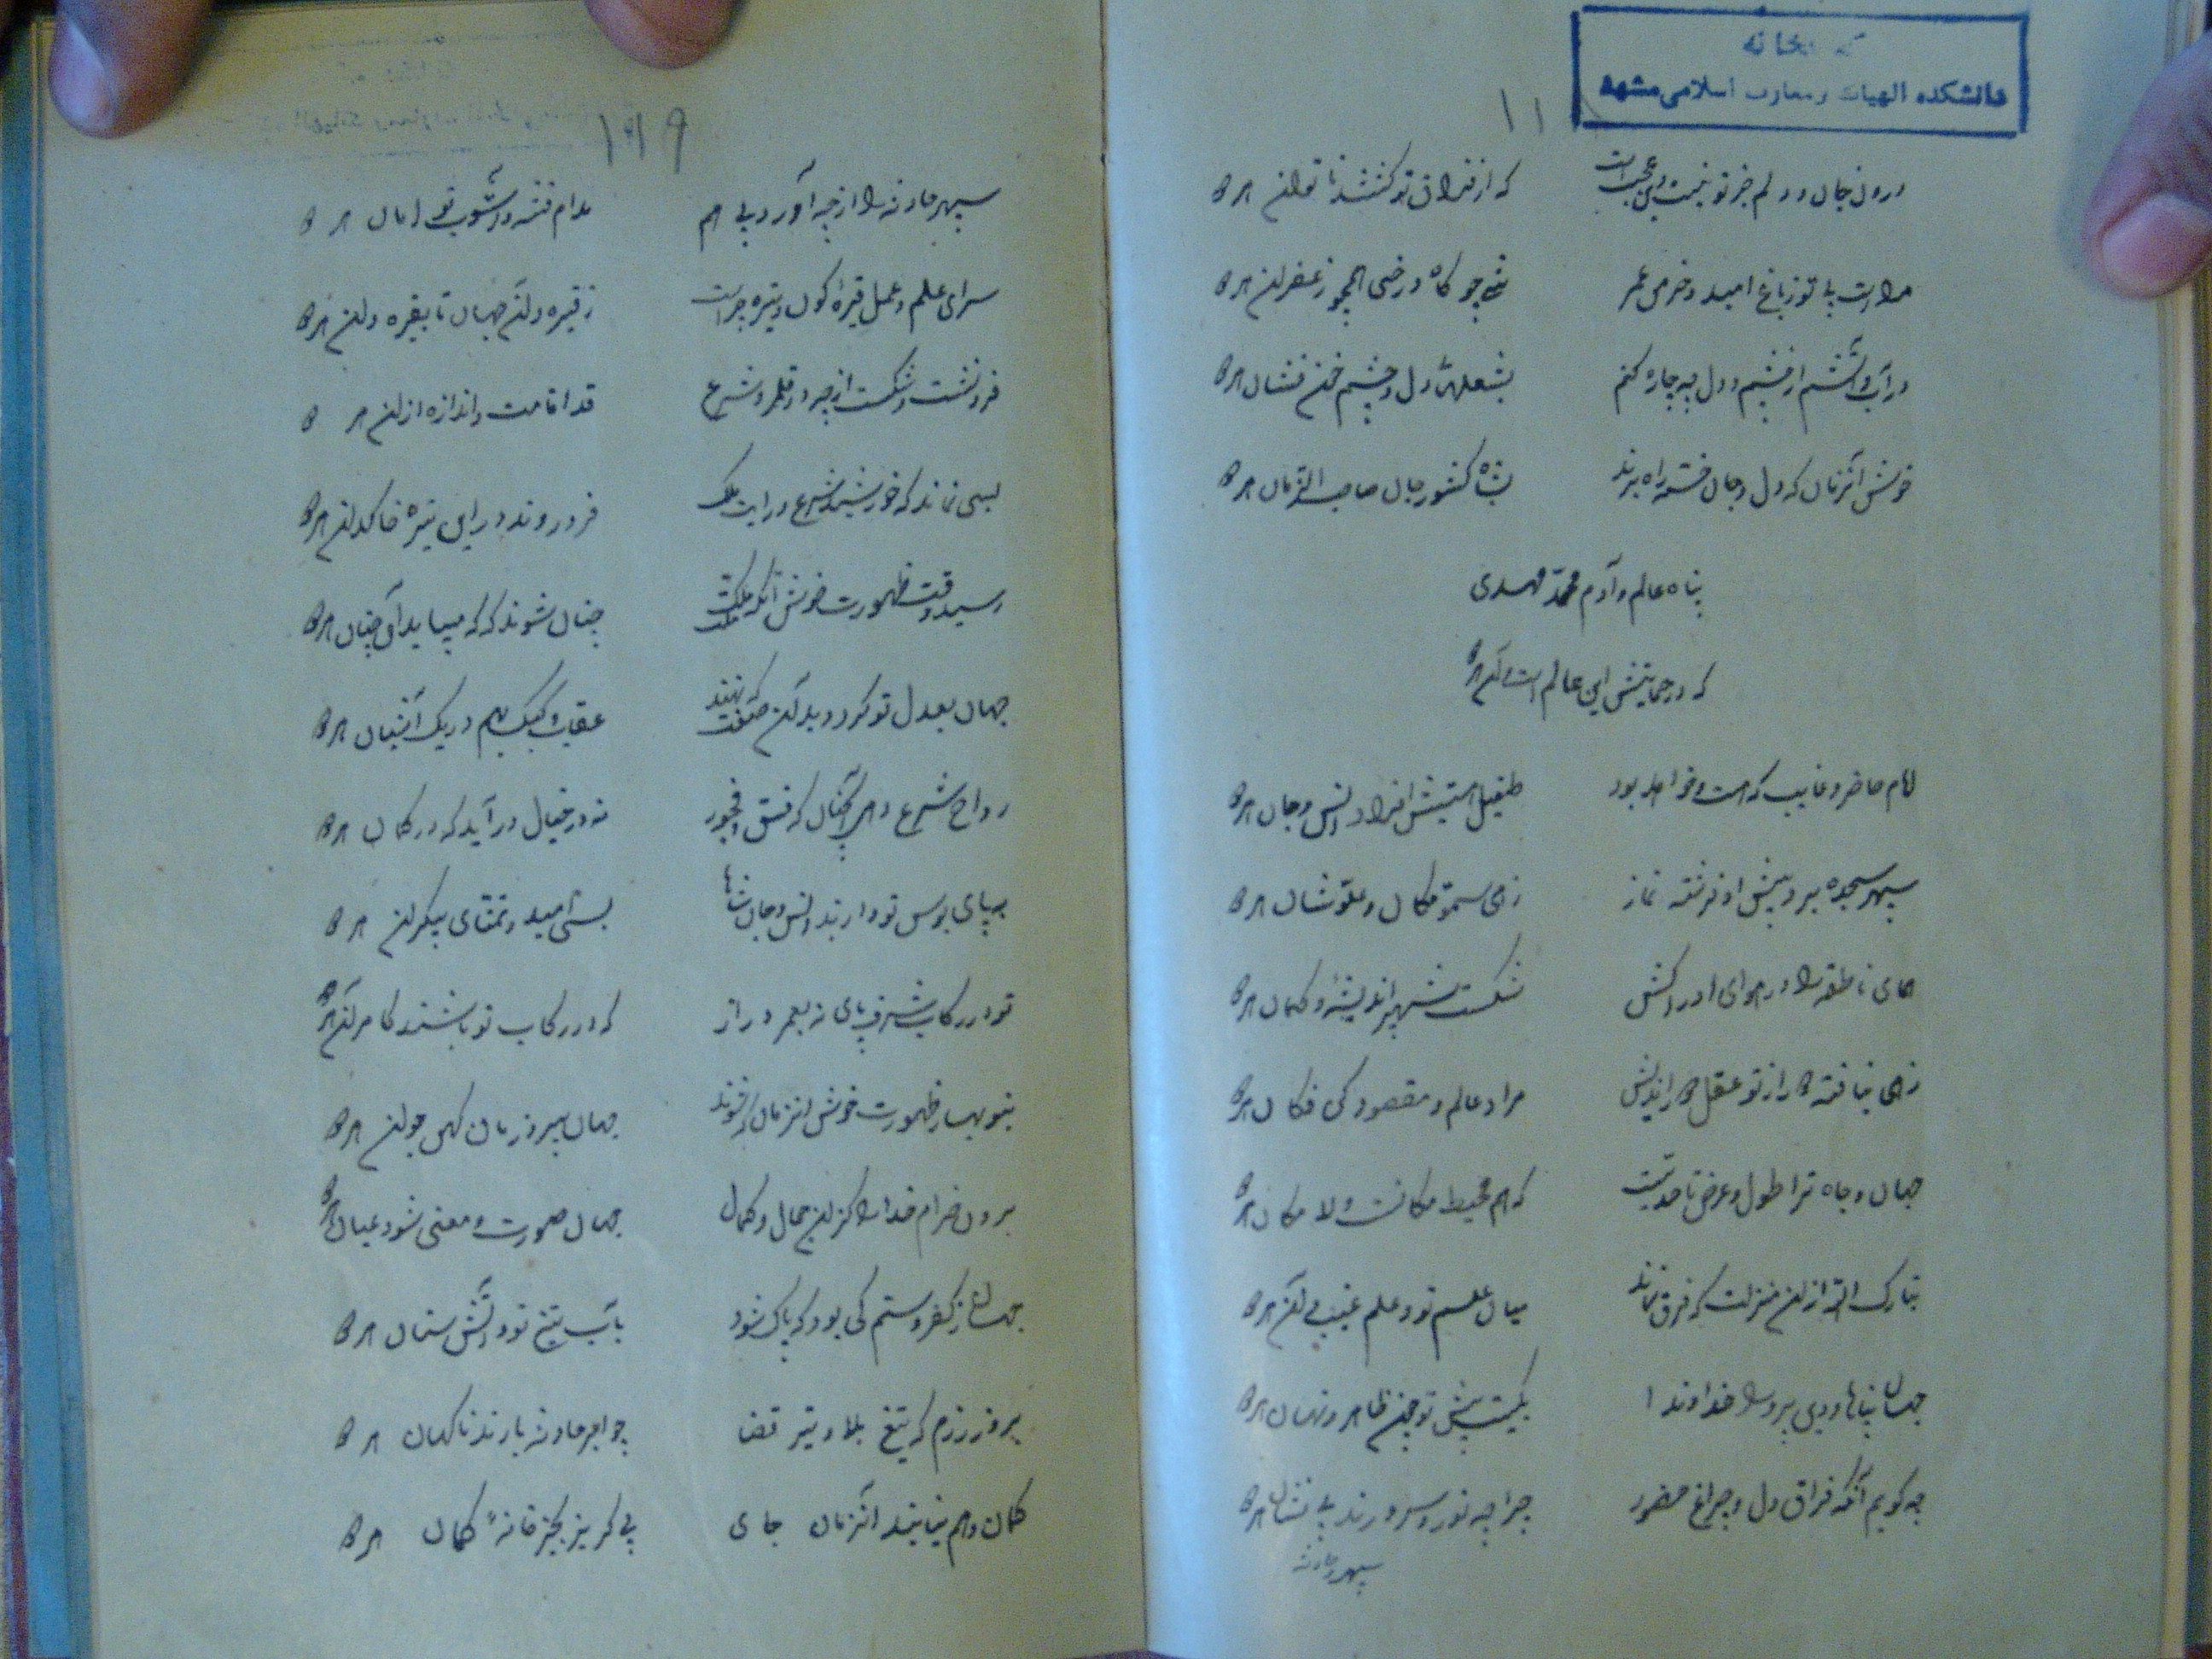 کتابخانه
دانشکده الهیات و معارف اسلامی مشهد
۱۱
درون جان و دلم جز تو نیست وین عجبست که از فراق تو کنشند ناتوان هر دو
مراست بی تو ز باغ امید و خرمی عمر تنی چو کاه و رخی همچو زعفران هر دو
در آب و آتشم از چشم و دل چه چاره کنم بشعله‌اند دل و چشم خون فشان هر دو
خوش آنزمان که دل و جان خسته راه برند بشاه کشور جان صاحب الزمان هر دو
پناه عالم و آدم محمد مهدی
که در حمایتش این عالم است و آن هر دو
امام حاضر و غایب که هست و خواهد بود طفیل هستیش افراد انس و جان هر دو
سپهر سجده برد پیش او فرشته نماز زهی سمو مکان و علو شان هر دو
همای ناطقه را در هوای ادراکش شکست شهپر اندیشه و گمان هر دو
زهی نیافته کار از تو عقل کار اندیش مراد عالم و مقصود کن فکان هر دو
جهان و جاه ترا طول و عرض تا حدیست که هم محیط مکانست و لا مکان هر دو
تبارک الله از ان منزلت که فرق نماند میان علم تو و علم غیب دان هر دو
جهان پناها و دین پرورا خداوندا یکیست پیش تو چون ظاهر و نهان هر دو
چه گویم آنکه فراق دل و چراغ حضور چرا چه نور و سرورند بی نشان هر دو
سپهر حادثه
۱۹۹
سپهر حادثه را از چه آورد بی هم مدام فتنه و آشوب تو امان هر دو
سرای علم و عمل قیره گون و تیره چراست ز قیره دان جهان تا بقیره دان هر دو
فرو نشست و شکست از چه در قلمرو شرع قد اقامت و اندازه اذان هر دو
بسی نماند که خورشید شرع و رایت ملک فرو روند در این تیره خاکدان هر دو
رسید وقت ظهورت خوش آنکه ملک و ملت چنان شوند که میباید آن چنان هر دو
جهان بعدل تو گردد بدان صفت که نهند عقاب و کبک بهم در یک آشیان هر دو
رواج شرع دهی آنچنان که فسق و فجور نه در خیال در آید که در گمان هر دو
به پای بوس تو دارند انس و جان شاها بسی امید و تمنای بیکران هر دو
تو در رکاب شرف پای نه بعمر دراز که در رکاب تو باشند کامران هر دو
بنوبهار ظهورت خوش انزمان که شوند جهان پیر و زمان کهن جوان هر دو
برون خرام خدا را کز ان جمال و کمال جهان صورت و معنی شود عیان هر دو
جهان ز کفر و ستم کی بود که پاک شود بآب تیغ تو و آتش سنان هر دو
بروز رزم که تیغ بلا و تیر قضا چو ابر حادثه بارند ناگهان هر دو
گمان و هم نیابند آنزمان جای پی گریز بجز خانه کمان هر دو